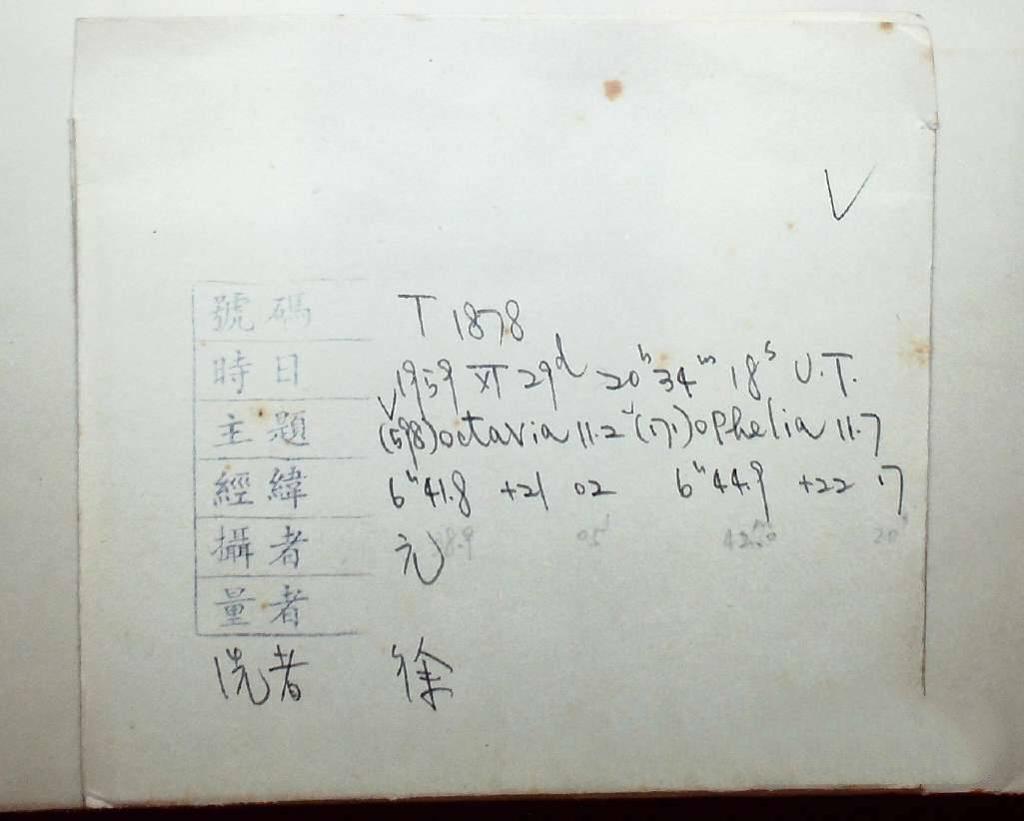 號碼 T 1878
時日 1959 XI 29d 20h 34m 18s U.T.
主題 (598) octavia 11.2 (171) ophelia 11.7
經緯 6h 41.8 +21 02 6h 44.9 +22 17
38.9 05' 20'
攝者 元
量者
洗者 徐